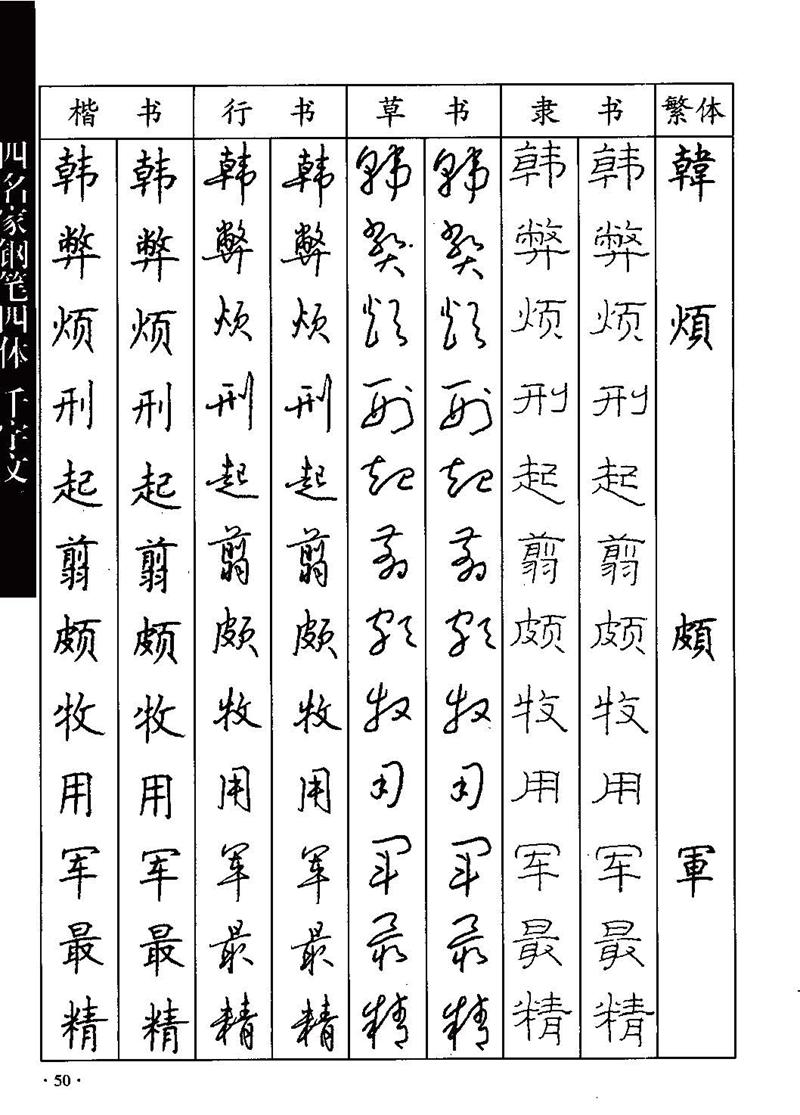 四名家钢笔四体 千字文
楷书 行书 草书 隶书 繁体
韩 韩 韩 韩 韩 韩 韩 韩 韓
弊 弊 弊 弊 弊 弊 弊 弊
烦 烦 烦 烦 烦 烦 烦 烦 煩
刑 刑 刑 刑 刑 刑 刑 刑
起 起 起 起 起 起 起 起
翦 翦 翦 翦 翦 翦 翦 翦
颇 颇 颇 颇 颇 颇 颇 颇 頗
牧 牧 牧 牧 牧 牧 牧 牧
用 用 用 用 用 用 用 用
军 军 军 军 军 军 军 军 軍
最 最 最 最 最 最 最 最
精 精 精 精 精 精 精 精
·50·